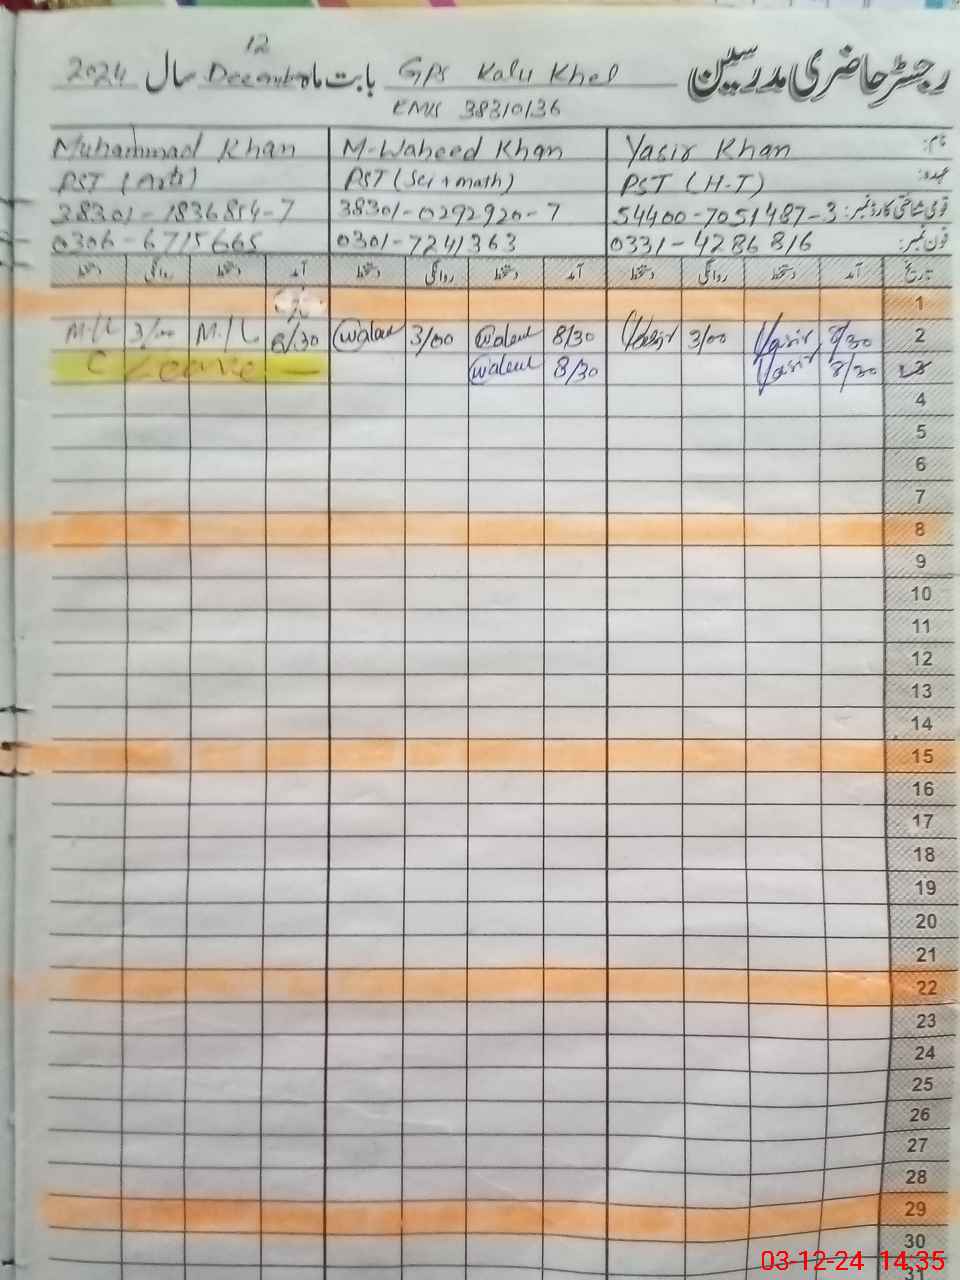 رجسٹر حاضری مدرسین GPS Kalu Khel بابت ماہ December 12 سال 2024
EMIS 38310136
نام: Yasir Khan M-Waheed Khan Muhammad Khan
عہدہ: PST (H-T) PST (Sci + math) PST (Arts)
قومی شناختی کارڈ نمبر: 54400-7051487-3 38301-0292920-7 38301-1836854-7
فون نمبر: 0331-4286816 0301-7241363 0306-6715665
تاریخ آمد دستخط روانگی دستخط آمد دستخط روانگی دستخط آمد دستخط روانگی دستخط
1
2 8/30 Yasir 3/00 Yasir 8/30 Waheed 3/00 Waheed 8/30 M/L 3/00 M/L
3 8/30 Yasir 8/30 Waheed C Leave
4
5
6
7
8
9
10
11
12
13
14
15
16
17
18
19
20
21
22
23
24
25
26
27
28
29
30
31
03-12-24 14:35